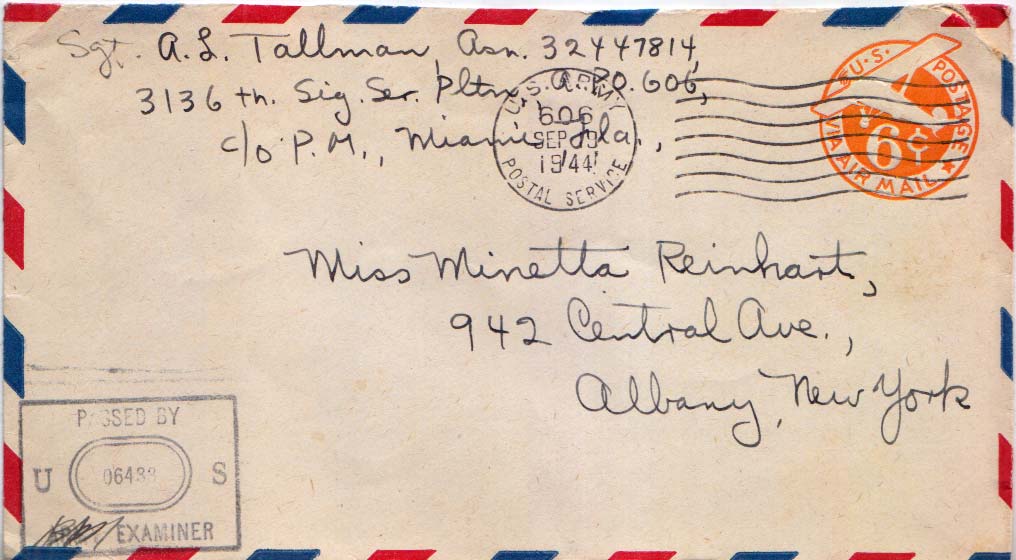 Sgt. A.L. Tallman, Asn. 32447814,
3136 th. Sig. Ser. Pltn, A.P.O. 606,
c/o P.M., Miami, Fla.,
U.S. ARMY
606
SEP 19
1944
POSTAL SERVICE
U.S. POSTAGE
6¢
VIA AIR MAIL
Miss Minetta Reinhart,
942 Central Ave.,
Albany, New York
PASSED BY
U 06433 S
EXAMINER